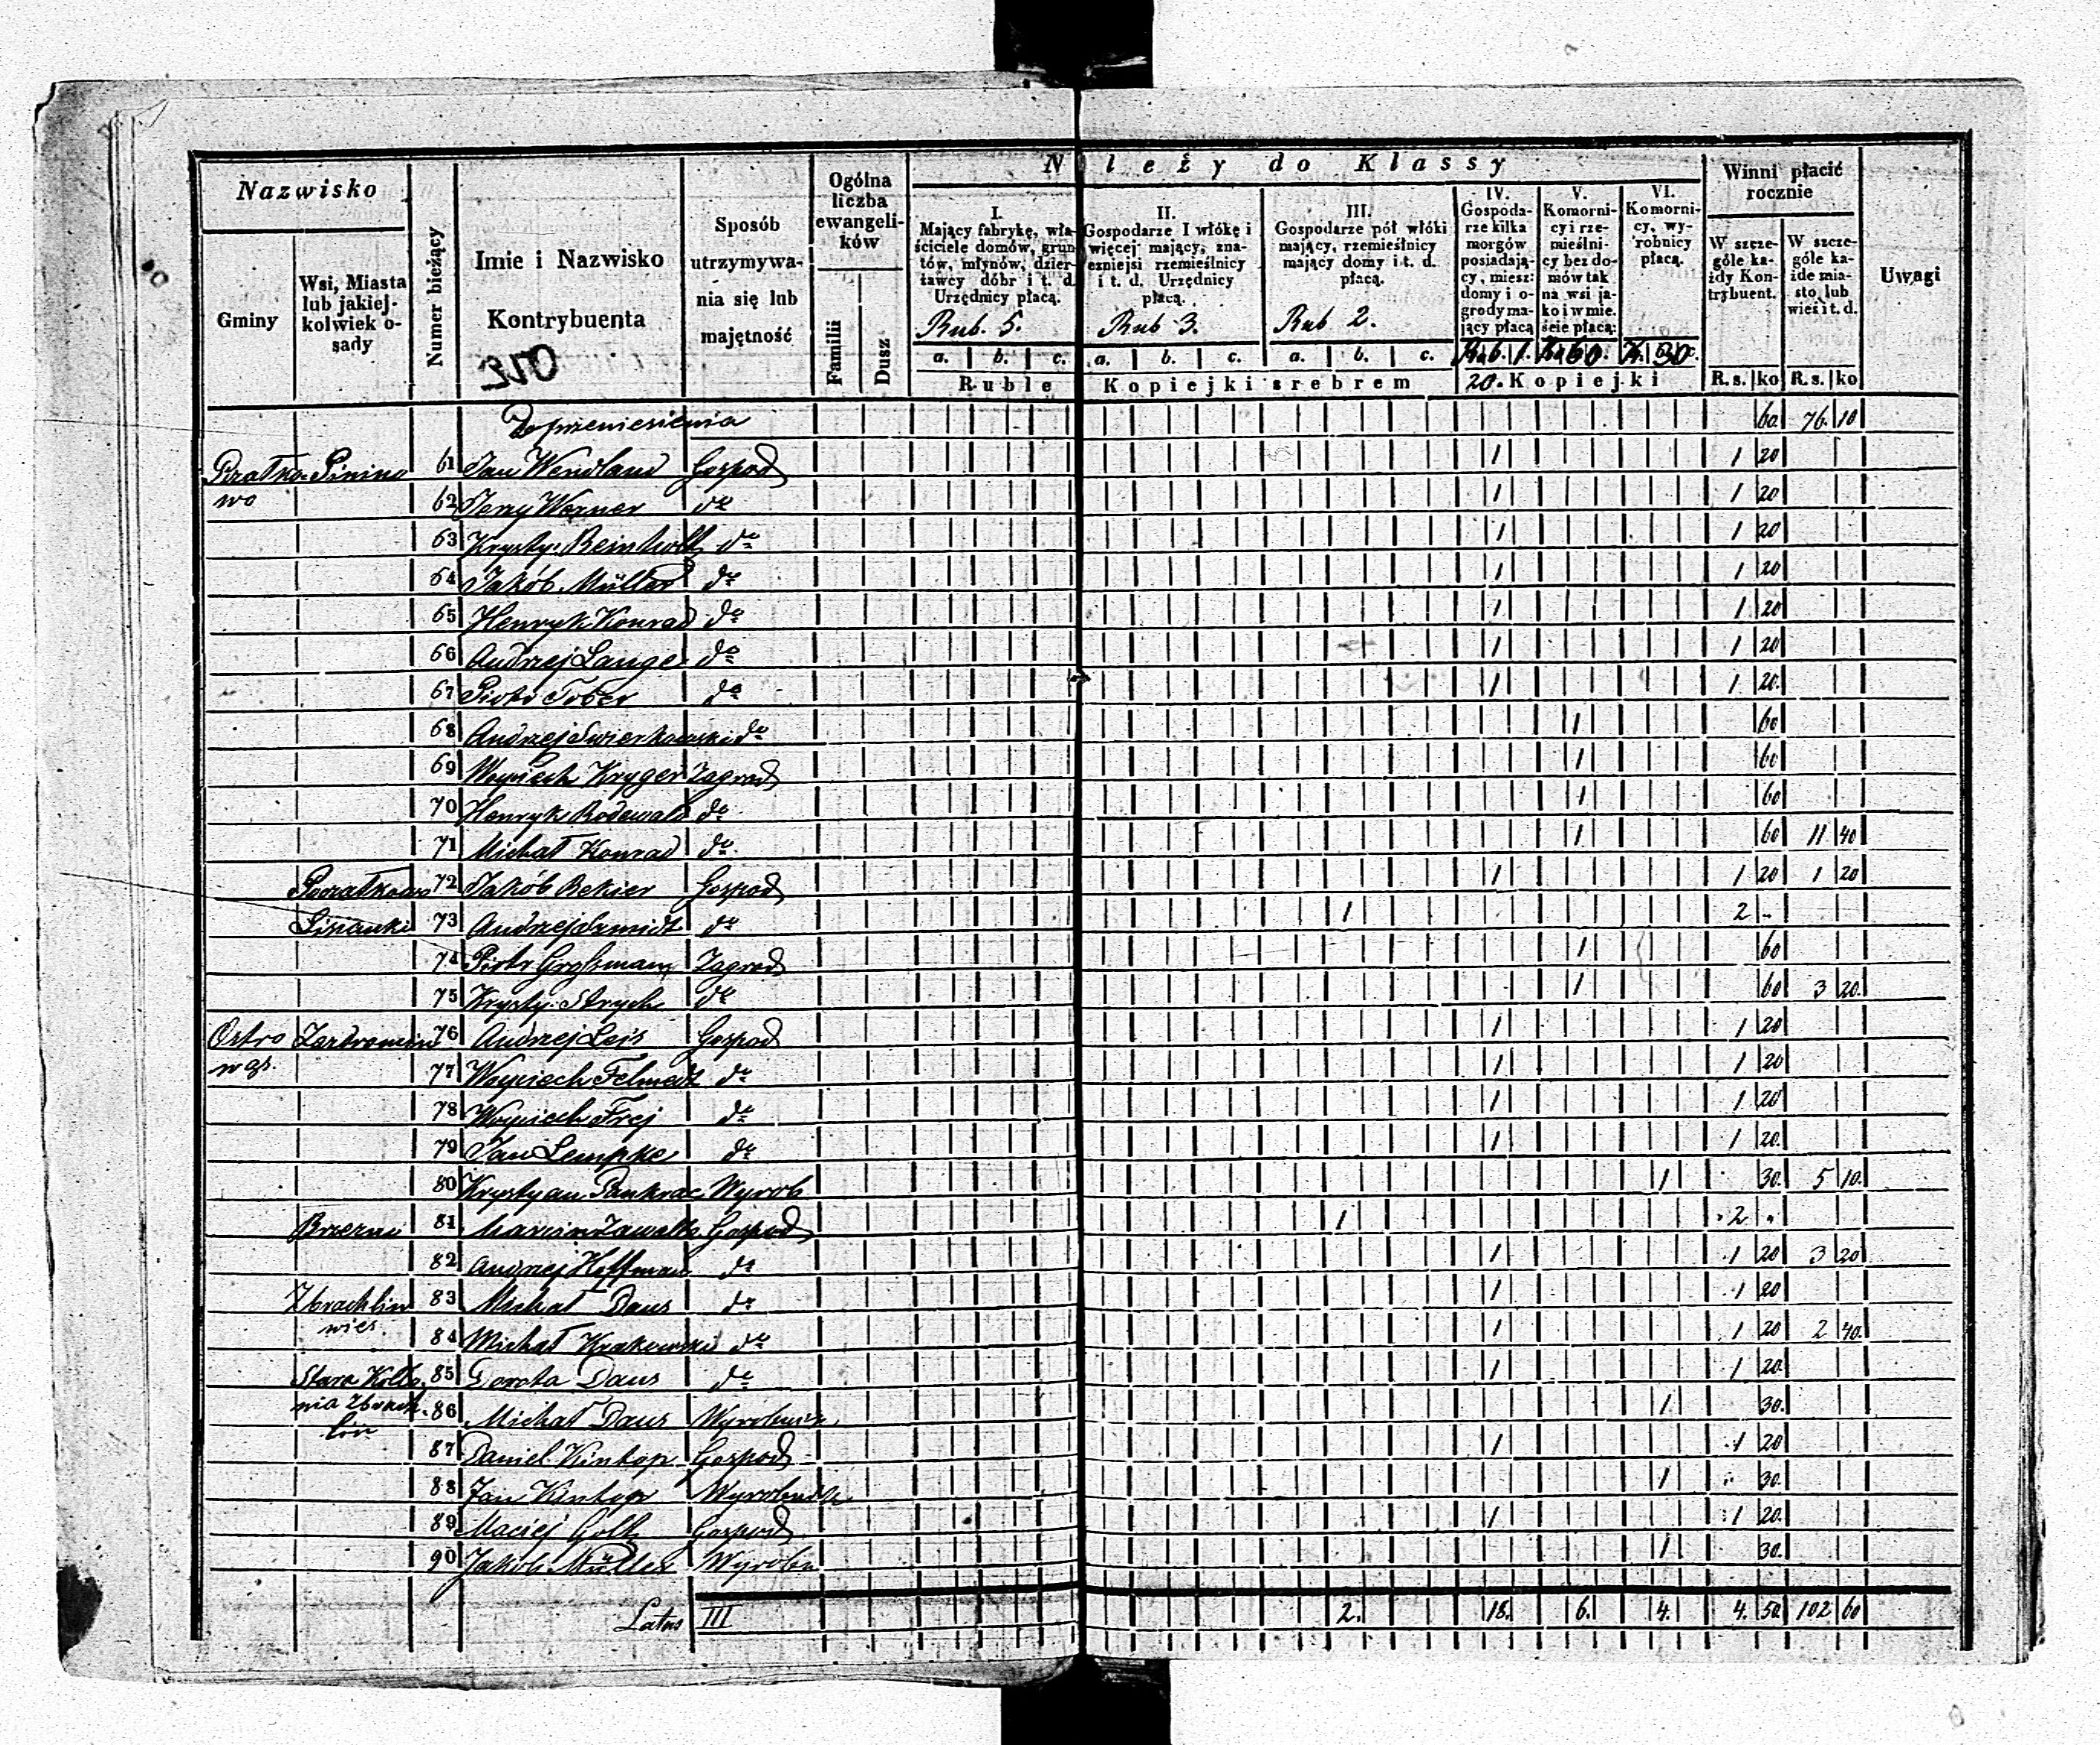 Nazwisko
Gminy
Wsi, Miasta lub jakiejkolwiek osady
Numer bieżący
Imie i Nazwisko Kontrybuenta
Sposób utrzymywania się lub majętność
Ogólna liczba ewangelików
Familii
Dusz
Należy do Klassy
I. Mający fabrykę, właściciele domów, gruntów, młynów, dzierżawcy dóbr i t. d. Urzędnicy płacą.
Rub. 5.
II. Gospodarze I włókę i więcej mający, znaczniejsi rzemieślnicy i t. d. Urzędnicy płacą.
Rub 3.
III. Gospodarze pół włóki mający, rzemieślnicy mający domy i t. d. płacą.
Rub 2.
IV. Gospodarze kilka morgów posiadający, miesz: domy i ogrody mający płacą
Rub. 1.
20.
V. Komornicy i rzemieślnicy bez domów tak na wsi jako i w mieście płacą:
K. 60.
VI. Komornicy, wyrobnicy płacą.
K. 30
a. b. c. a. b. c. a. b. c.
Ruble Kopiejki srebrem Kopiejki
Winni płacić rocznie
W szczególe każdy Kontrybuent.
W szczególe każde miasto, lub wieś i t. d.
R.s. ko R.s. ko
Uwagi
Do przeniesienia 60. 76. 10
Pinino 61 Jan Wendland Gospod 1 1 20
wo 62 Jerzy Werner do 1 1 20
63 Krysty: Beinholtz do 1 1 20
64 Jakób Müller do 1 1 20
65 Henryk Konrad do 1 1 20
66 Andrzej Lange do 1 1 20
67 Piotr Tober do 1 1 20.
68 Andrzej Swierkowski do 1 60
69 Woyciech Kryger Zagrod 1 60
70 Henryk Rodewald do 1 60
71 Michał Konrad do 1 60 11 40
72 Jakób Bekier Gospod 1 1 20 1 20
73 Andrzej Szmidt do 1 2 "
74 Piotr Zagrod 1 60
75 Krysty: Strych do 1 60 3 20.
Ostro 76 Andrzej Leis Gospod 1 1 20
77 Woyciech do 1 1 20
78 Woyciech Frej do 1 1 20
79 Jan Lempke do 1 1 20.
80 Krystyan Pankrac Wyrob 1 30. 5 10.
81 Gospod 1 2 "
82 Andrzej Hoffman do 1 1 20 3 20
Zbrachlin 83 Michał Daus do 1 1 20
wieś. 84 Michał Krakowski do 1 1 20 2 40.
Stara Kollo 85 Dorota Daus do 1 1 20.
nia Zbrach 86 Michał Daus 1 30.
lin
87 Daniel Kintop Gospod 1 1 20
88 Jan Kintop 1 30.
89 Maciej Golk Gospod 1 1 20.
90 Jakób Müller Wyrobn 1 30.
Latus III 2. 18. 6. 4. 4. 50 102 60